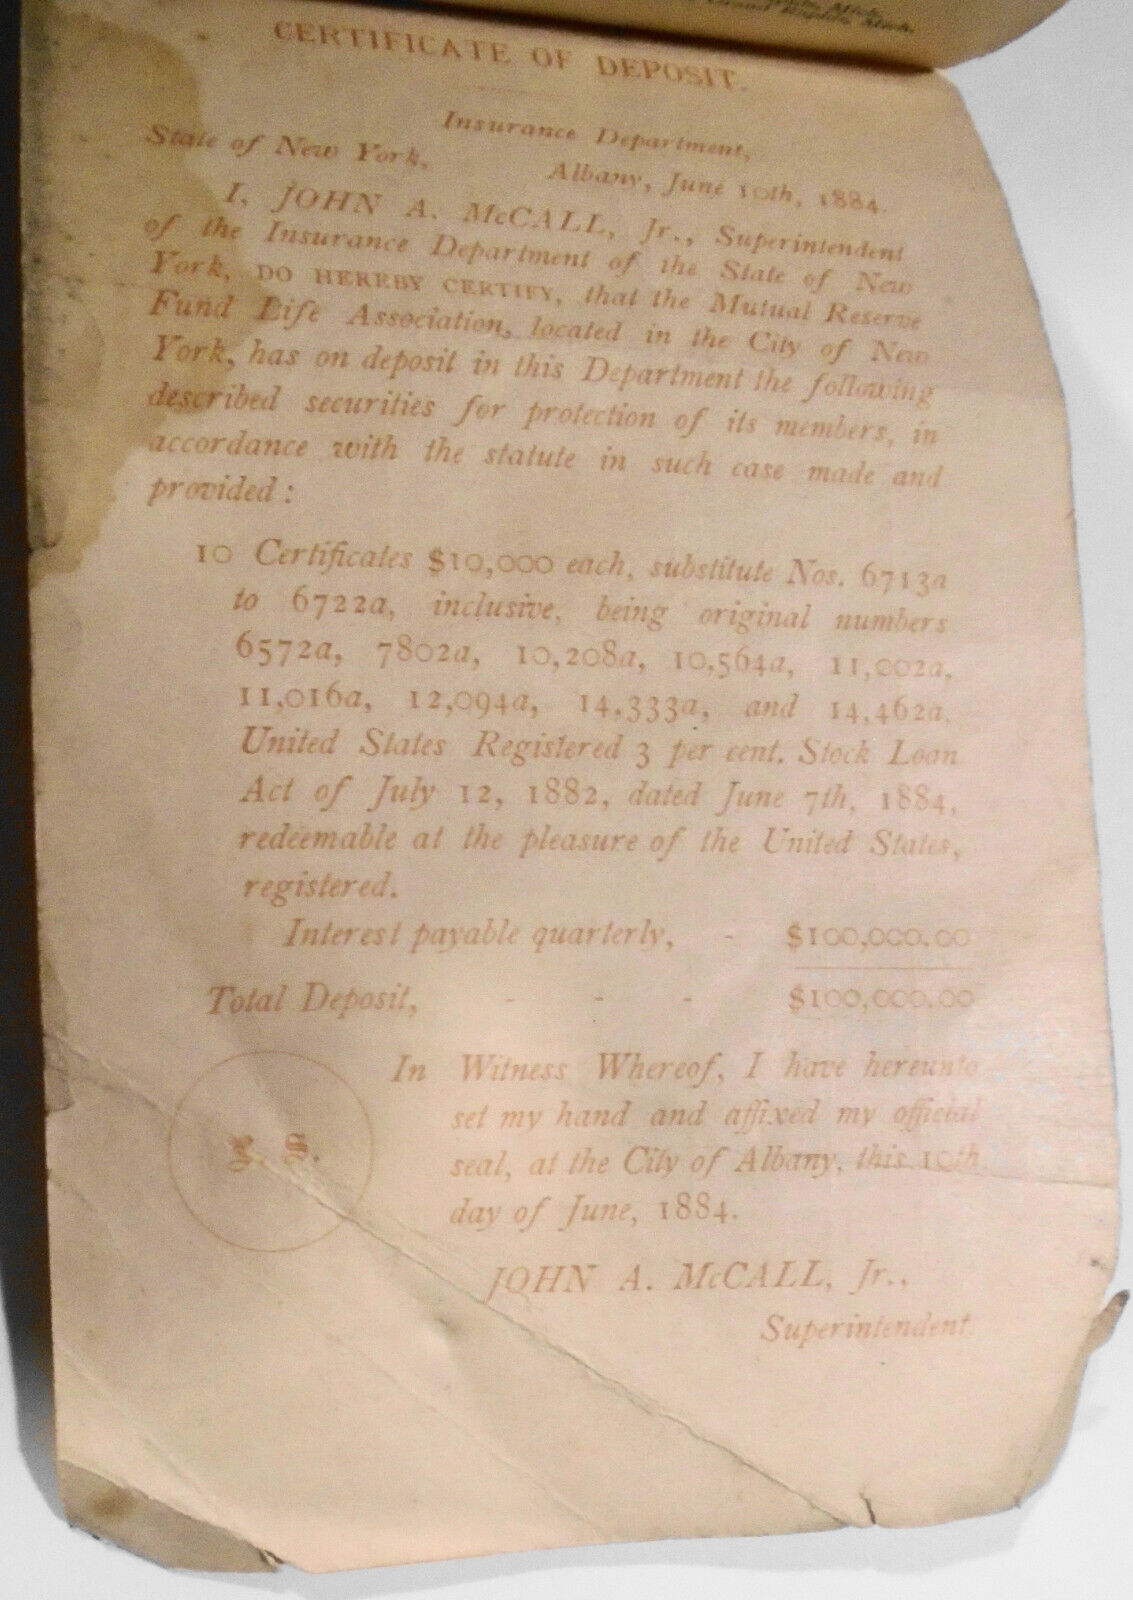 Grand Rapids, Mich.
CERTIFICATE OF DEPOSIT.
Insurance Department,
State of New York,
Albany, June 10th, 1884.
I, JOHN A. McCALL, Jr., Superintendent
of the Insurance Department of the State of New
York, DO HEREBY CERTIFY, that the Mutual Reserve
Fund Life Association, located in the City of New
York, has on deposit in this Department the following
described securities for protection of its members, in
accordance with the statute in such case made and
provided:
10 Certificates $10,000 each, substitute Nos. 6713a
to 6722a, inclusive, being original numbers
6572a, 7802a, 10,208a, 10,564a, 11,002a,
11,016a, 12,094a, 14,333a, and 14,462a,
United States Registered 3 per cent. Stock Loan
Act of July 12, 1882, dated June 7th, 1884,
redeemable at the pleasure of the United States,
registered.
Interest payable quarterly, - $100,000.00
Total Deposit, - - - $100,000.00
In Witness Whereof, I have hereunto
set my hand and affixed my official
seal, at the City of Albany, this 10th
day of June, 1884.
L. S.
JOHN A. McCALL, Jr.,
Superintendent.